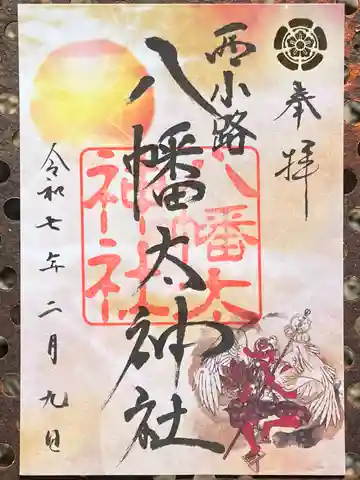 奉拝
西小路
八幡太神社
八幡太神社
令和七年二月九日